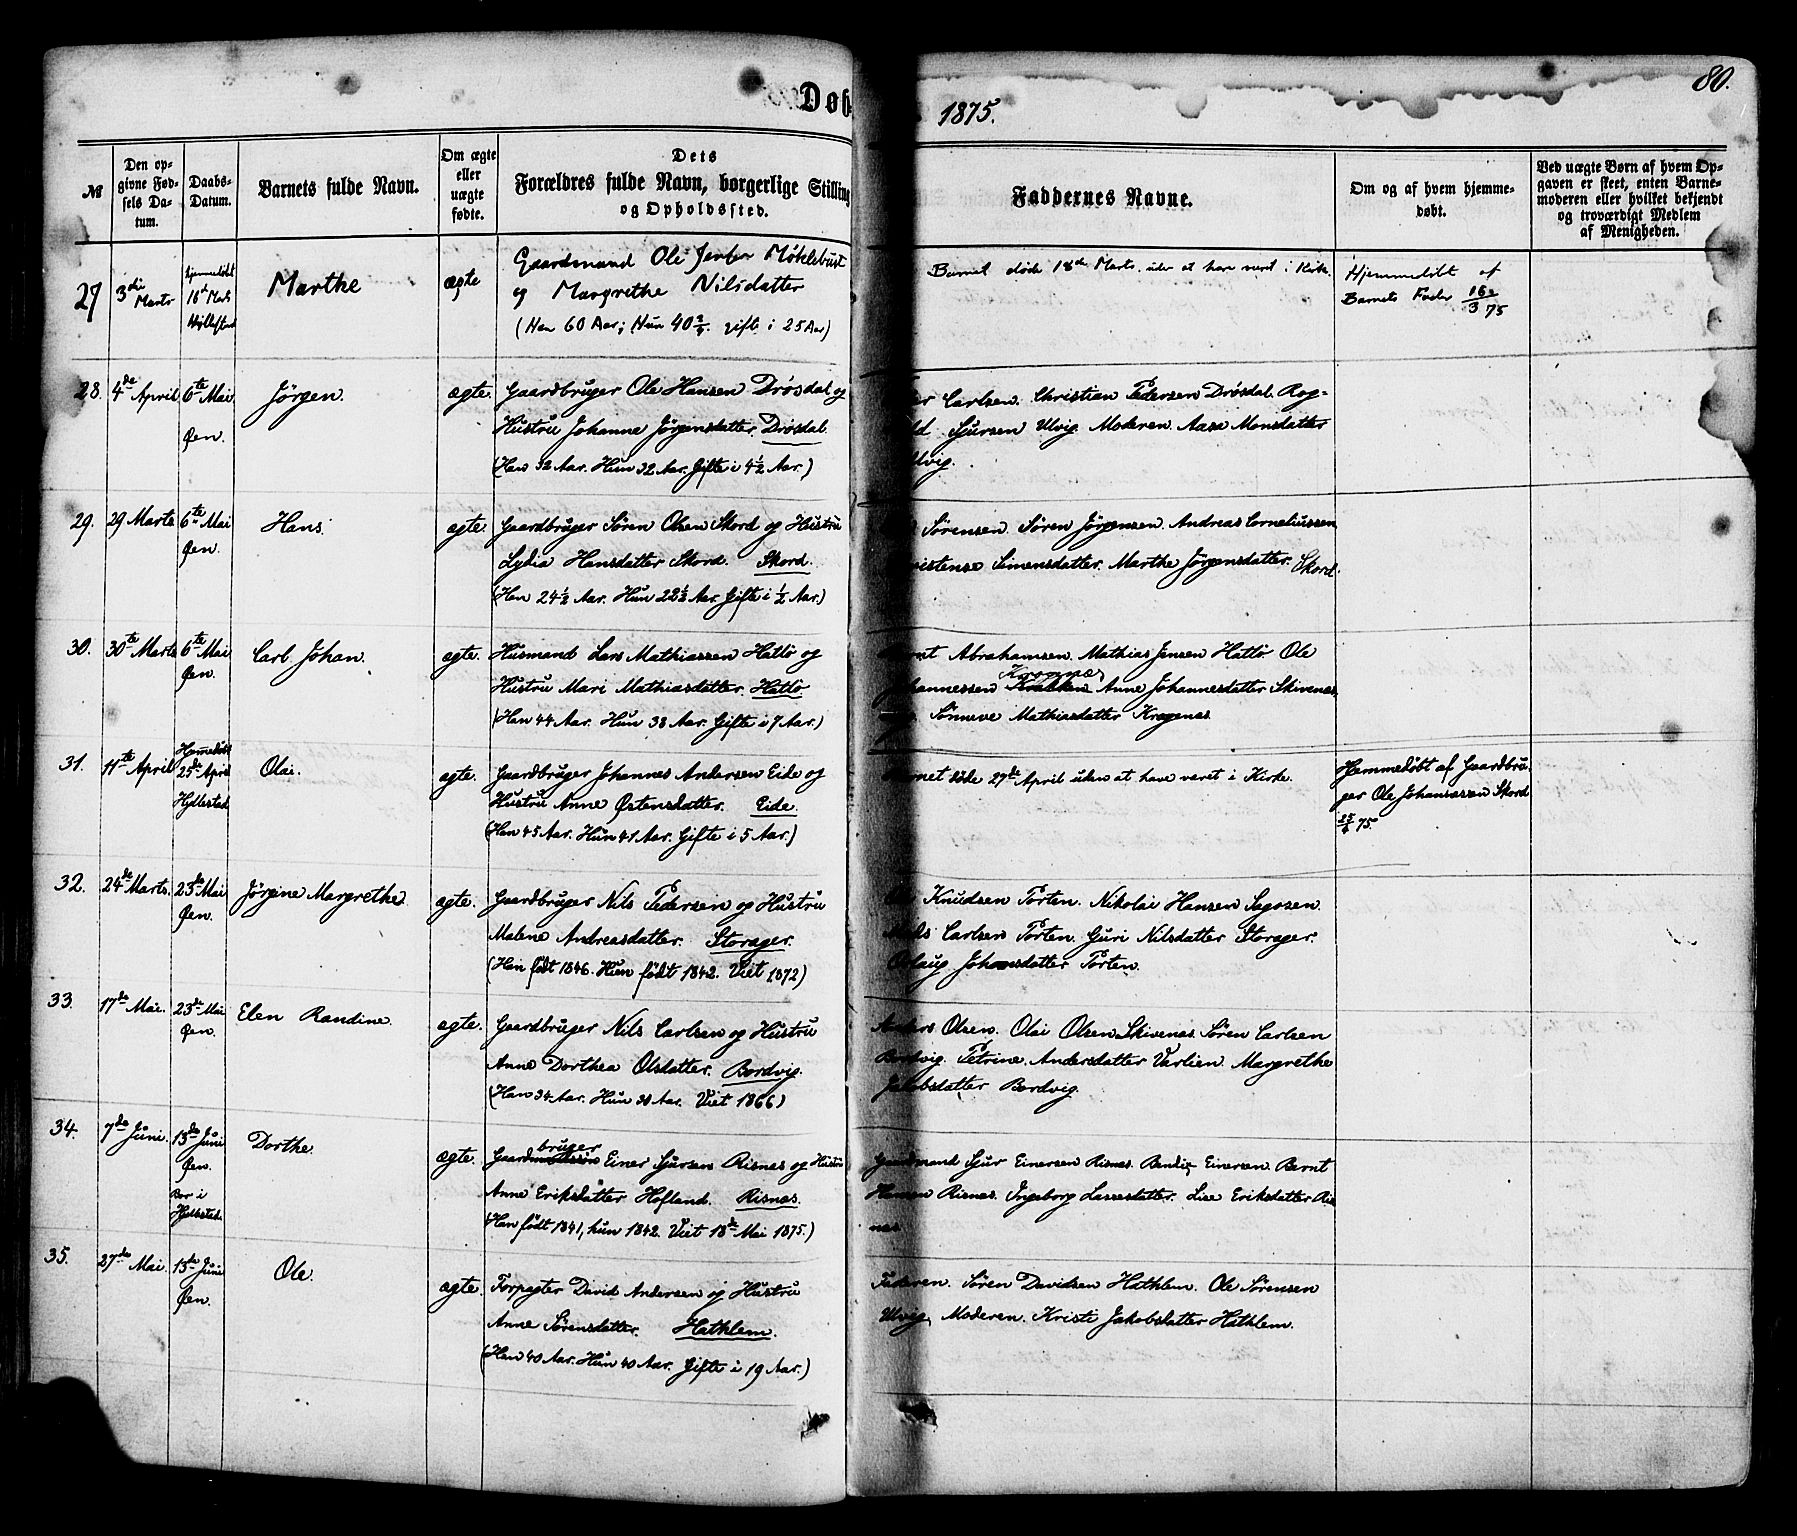 Døb
1875.
80.
№
Den op-
givne Fød-
sels Da-
tum.
Daabs-
Datum.
Barnets fulde Navn.
Om ægte
eller
uægte
fødte.
Dets
Forældres fulde Navn, borgerlige Stilling
og Opholdssted.
Faddernes Navne.
Om og af hvem hjemme-
døbt.
Ved uægte Børn af hvem Op-
gaven er skeet, enten Barne-
moderen eller hvilket bekjendt
og troværdigt Medlem
af Menigheden.
27
3die
Marts
Hjemmedøbt
16de Marts
Hyllestad
Marthe
ægte
Gaardmand Ole Møklebust
og Margrethe Nilsdatter
(Han 60 Aar; Hun 40 gifte i 25 Aar)
Barnet døde 18de Marts uden at have været i Kirke.
Hjemmedøbt af
Barnets Fader 16/3 75
28.
4de April
6te Mai
Øen.
Jörgen.
ægte.
Gaardbruger Ole Hansen Drösdal og
Hustru Johanne Jörgensdatter. Drösdal.
(Han 32 Aar. Hun 32 Aar. Gifte i 4½ Aar.)
er Carlsen. Christian Pedersen Drösdal. Rog-
ld Sjursen Ulvig. Moderen. Aase Monsdatter
Ulvig.
29.
29 Marts
6te Mai
Øen.
Hans.
ægte.
Gaardbruger Sören Olsen Skord og Hustru
Lydia Hansdatter Skord. Skord.
(Han 24½ Aar. Hun 22½ Aar. Gifte i ½ Aar.)
Sörensen. Sören Jörgensen. Andreas Corneliussen
ristense Simensdatter. Marthe Jörgensdatter. Skord.
30.
30te Marts
6te Mai
Øen.
Carl Johan.
ægte.
Husmand Lars Mathiassen Hatlö og
Hustru Mari Mathiasdatter. Hatlö
(Han 44 Aar. Hun 38 Aar. Gifte i 7 Aar.)
Bernt Abrahamsen. Mathias Jensen Hatlö Ole
Johannessen Anne Johannesdatter Skivenes.
Sönneve Mathiasdatter Kragenes.
31.
11te April
Hjemmedøbt
25de April
Hyllestad
Olai.
ægte.
Gaardbruger Johannes Andersen Eide og
Hustru Anne Østensdatter. Eide.
(Han 45 Aar. Hun 41 Aar. Gifte i 5 Aar.)
Barnet döde 27de April uden at have været i Kirke.
Hjemmedøbt af Gaardbru-
ger Ole Johannessen Skord
25/4 75.
32.
24de Marts.
23de Mai
Øen.
Jörgine Margrethe.
ægte.
Gaardbruger Nils Pedersen og Hustru
Malene Andreasdatter. Storager.
(Han født 1846. Hun født 1842. Viet 1872)
Knudsen Porten. Nikolai Hansen Sagosen.
Mads Carlsen Porten. Guri Nilsdatter Storager.
Oslaug Johansdatter Porten.
33.
17de Mai.
23de Mai
Øen.
Elen Randine.
ægte.
Gaardbruger Nils Carlsen og Hustru
Anne Dorthea Olsdatter. Bordvig.
(Han 34 Aar. Hun 38 Aar. Viet 1866)
Anders Olsen. Olai Olsen Skivenes. Sören Carlsen
Bordvig. Petrine Andersdatter Varlien. Margrethe
Jakobsdatter Bordvig.
34.
7de Juni.
13de Juni
Øen.
Bor i
Hyllestad.
Dorthe.
ægte.
bruger
Gaard Einer Sjursen Risnes og Hustru
Anne Eriksdatter Hofland. Risnes.
(Han født 1841, hun 1842. Viet 18de Mai 1875.)
Gaardmand Sjur Einersen Risnes. Bendik Einersen. Bernt
Hansen Risnes. Ingeborg Lassesdatter. Lise Eriksdatter Ris-
nes.
35.
27de Mai.
13de Juni
Øen.
Ole.
ægte.
Forpagter David Andersen og Hustru
Anne Sörensdatter. Hatklem.
(Han 40 Aar. Hun 40 Aar. Gifte i 19 Aar.)
Faderen. Sören Davidsen Hatklem. Ole Sörensen
Ulvig. Moderen. Kristi Jakobsdatter Hatklem.